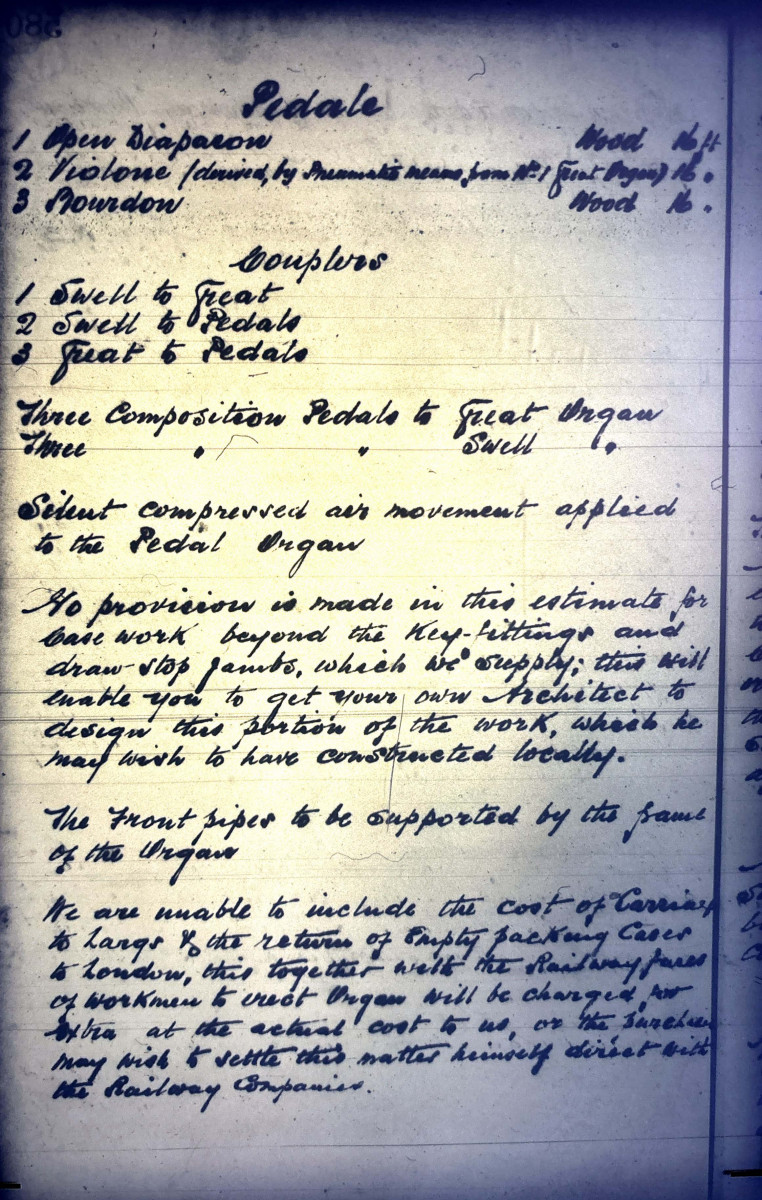 Pedale
1 Open Diapason Wood 16 ft
2 Violone (derived, by Pneumatic means, from No. 1 Great Organ) 16 "
3 Bourdon Wood 16 "
Couplers
1 Swell to Great
2 Swell to Pedals
3 Great to Pedals
Three Composition Pedals to Great Organ
Three " " Swell "
Silent compressed air movement applied
to the Pedal Organ
No provision is made in this estimate for
Case work beyond the Key-fittings and
draw stop jambs, which we supply; this will
enable you to get your own Architect to
design this portion of the work, which he
may wish to have constructed locally.
The Front pipes to be supported by the frame
of the Organ
We are unable to include the cost of Carriage
to Largs & the return of Empty packing Cases
to London, this together with the Railway fares
of workmen to erect Organ will be charged as
Extra at the actual cost to us, or the
may wish to settle this matter himself direct with
the Railway Companies.